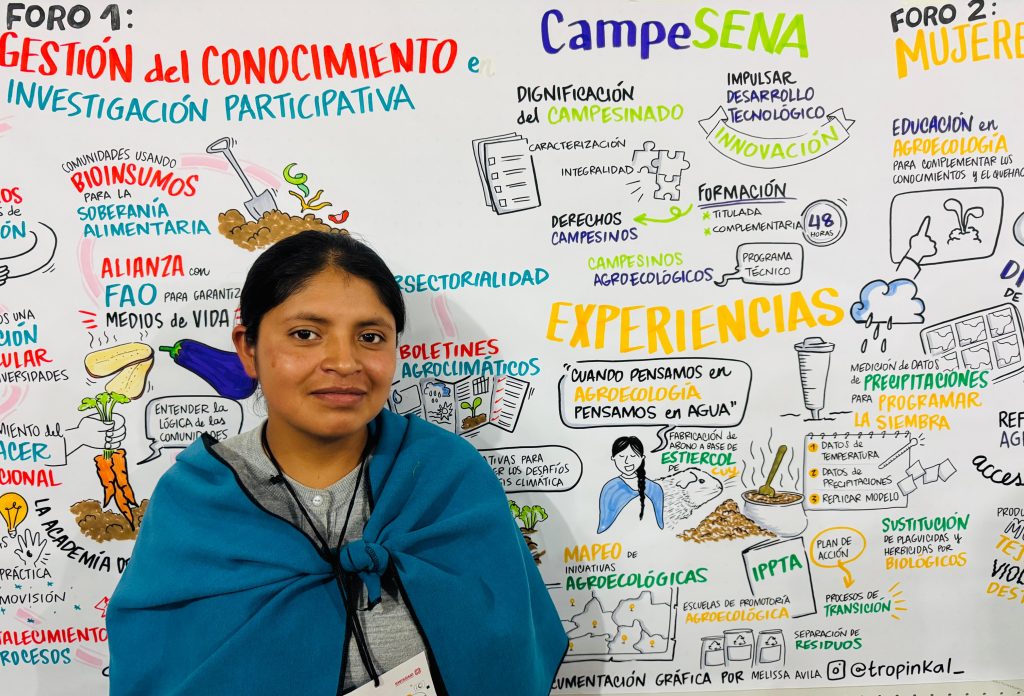 FORO 1:
GESTIÓN del CONOCIMIENTO en
INVESTIGACIÓN PARTICIPATIVA
COMUNIDADES USANDO
BIOINSUMOS
PARA LA
SOBERANÍA
ALIMENTARIA
ALIANZA con
FAO PARA GARANTIZ
MEDIOS de VIDA
RSECTORIALIDAD
BOLETINES
AGROCLIMÁTICOS
ENTENDER LA
LÓGICA de las
COMUNIDADES
OS UNA
CULAR
VERSIDADES
MIENTO del
ACER
CIONAL
LA ACADEMIA DE
PRÁCTICA
MOVISIÓN
TALECIMIENTO
ROCESOS
TIVAS PARA
ER LOS DESAFÍOS
IS CLIMÁTICA
CampeSENA
DIGNIFICACIÓN
del CAMPESINADO
CARACTERIZACIÓN
INTEGRALIDAD
IMPULSAR
DESARROLLO
TECNOLÓGICO
INNOVACIÓN
FORMACIÓN
TITULADA
COMPLEMENTARIA
48
HORAS
DERECHOS
CAMPESINOS
CAMPESINOS
AGROECOLÓGICOS
PROGRAMA
TÉCNICO
EXPERIENCIAS
"CUANDO PENSAMOS en
AGROECOLOGÍA
PENSAMOS en AGUA"
FABRICACIÓN de
ABONO A BASE de
ESTIERCOL
DE CUY
MAPEO DE
INICIATIVAS
AGROECOLÓGICAS
IPPTA
ESCUELAS DE PROMOTORÍA
AGROECOLÓGICA
SEPARACIÓN DE
RESIDUOS
PLAN DE
ACCIÓN
PROCESOS DE
TRANSICIÓN
MEDICIÓN de DATOS
de PRECIPITACIONES
PARA PROGRAMAR
LA SIEMBRA
1 DATOS de
TEMPERATURA
2 DATOS de
PRECIPITACIONES
3 REPLICAR MODELO
SUSTITUCIÓN
DE PLAGUICIDAS y
HERBICIDAS POR
BIOLÓGICOS
FORO 2:
MUJERE
EDUCACIÓN en
AGROECOLOGÍA
PARA COMPLEMENTAR LOS
CONOCIMIENTOS Y EL QUEHAC
DE
acces
PRODU
TE
VIOL
DEST
CUMENTACIÓN GRÁFICA POR MELISSA AVILA @tropinkal_